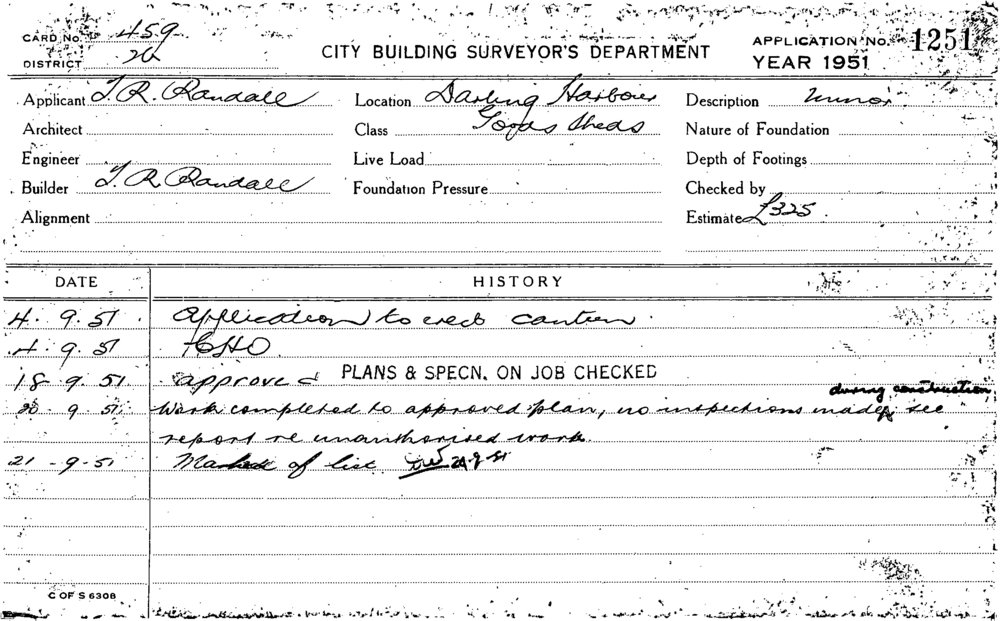 CARD No. 459
CITY BUILDING SURVEYOR'S DEPARTMENT
APPLICATION No. 1251
DISTRICT 26
YEAR 1951
Applicant T. R. Randall
Location Darling Harbour
Description Minor
Architect
Class Goods Sheds
Nature of Foundation
Engineer
Live Load
Depth of Footings
Builder T. R. Randall
Foundation Pressure
Checked by
Alignment
Estimate £325
DATE HISTORY
4. 9. 51 Application to erect canteen.
4. 9. 51 CHO.
18. 9. 51 approved PLANS & SPECN. ON JOB CHECKED
during construction,
20. 9. 51 Work completed to approved plan, no inspections made, see
report re unauthorised work.
21-9-51 Marked of list 21-9-51
C OF S 6308